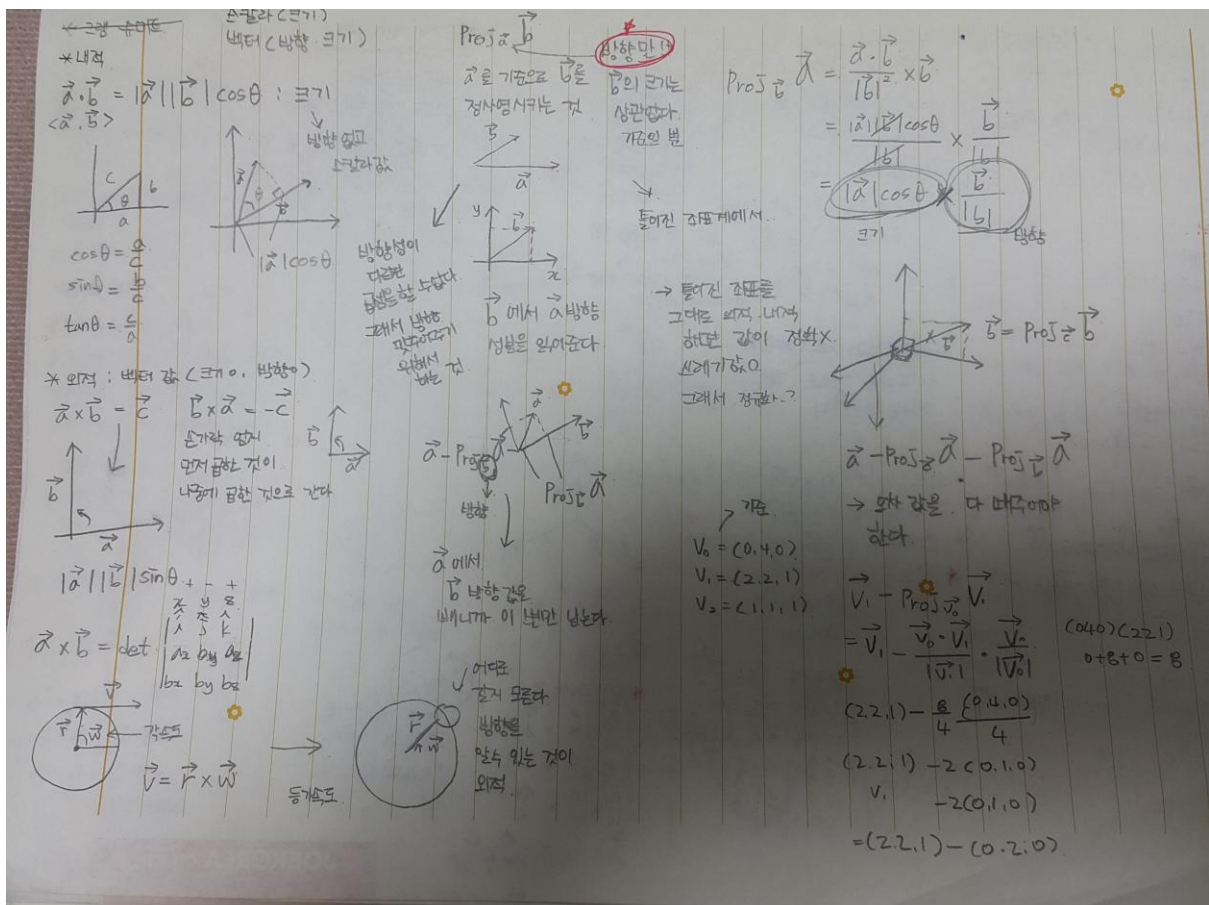 * 그램 슈미트
스칼라 (크기)
벡터 (방향 크기)
* 내적
a⃗·b⃗ = |a⃗||b⃗| cosθ : 크기
<a⃗, b⃗>
방향 없고
스칼라값
c
b
θ
a
a⃗
θ
b⃗
|a⃗|cosθ
cosθ = a/c
sinθ = b/c
tanθ = c/a
* 외적 : 벡터 값 (크기 o, 방향 o)
a⃗ × b⃗ = c⃗
b⃗ × a⃗ = -c⃗
손가락 엄지
먼저 곱한 것이
나중에 곱한 것으로 간다
b⃗
a⃗
b⃗
a⃗
|a⃗||b⃗|sinθ
+ - +
x y z
i j k
a⃗ × b⃗ = det
ax by az
bx by bz
v⃗
r⃗
w⃗
각속도
v⃗ = r⃗ × w⃗
등가속도
Proj a⃗ b⃗
a⃗를 기준으로 b⃗를
정사영시키는 것
방향만!!
b⃗의 크기는
상관없다
기준일 뿐
b⃗
a⃗
y
b⃗
x
방향성이
다르면
곱셈을 할 수 없다.
그래서 방향
맞추어주기
위해서
하는 것
b⃗ 에서 a⃗ 방향
성분을 읽어준다
a⃗
b⃗
a⃗ - Proj b⃗ a⃗
Proj b⃗ a⃗
방향
a⃗ 에서
b⃗ 방향 값을
빼니까 이 부분만 남는다
어디로
갈지 모른다
방향을
알수 있는 것이
외적
r⃗
w⃗
틀어진 좌표계에서
→ 틀어진 좌표를
그대로 외적·내적
하면 값이 정확x.
쓰레기값o
그래서 정규화..?
기준
V₀ = (0.4,0)
V₁ = (2.2, 1)
V₂ = (1, 1, 1)
Proj b⃗ a⃗ = a⃗·b⃗/|b⃗|² × b⃗
= |a⃗||b⃗|cosθ/|b| × b⃗/|b|
= |a⃗|cosθ × b⃗/|b|
크기
방향
b⃗ = Proj c⃗ b⃗
a⃗ - Proj c⃗ a⃗ - Proj b⃗ a⃗
→ 오차 값을 다 빼주어야
한다.
V⃗₁ - Proj v⃗₀ V⃗₁
= V⃗₁ - V⃗₀·V⃗₁/|V⃗₁| · V⃗₀/|V⃗₀|
(040)(221)
0+8+0 = 8
(2.2,1) - 8/4 (0.4,0)/4
(2.2,1) - 2(0.1,0)
V₁ -2(0,1,0)
= (2.2,1) - (0.2,0)